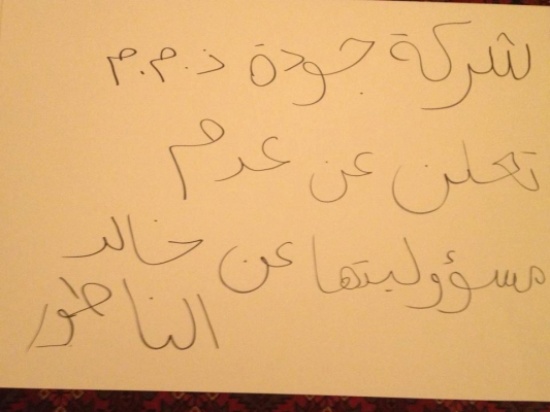 شركة جودة ذ.م.م
تعلن عن عدم
مسؤوليتها عن خالد
الناطور